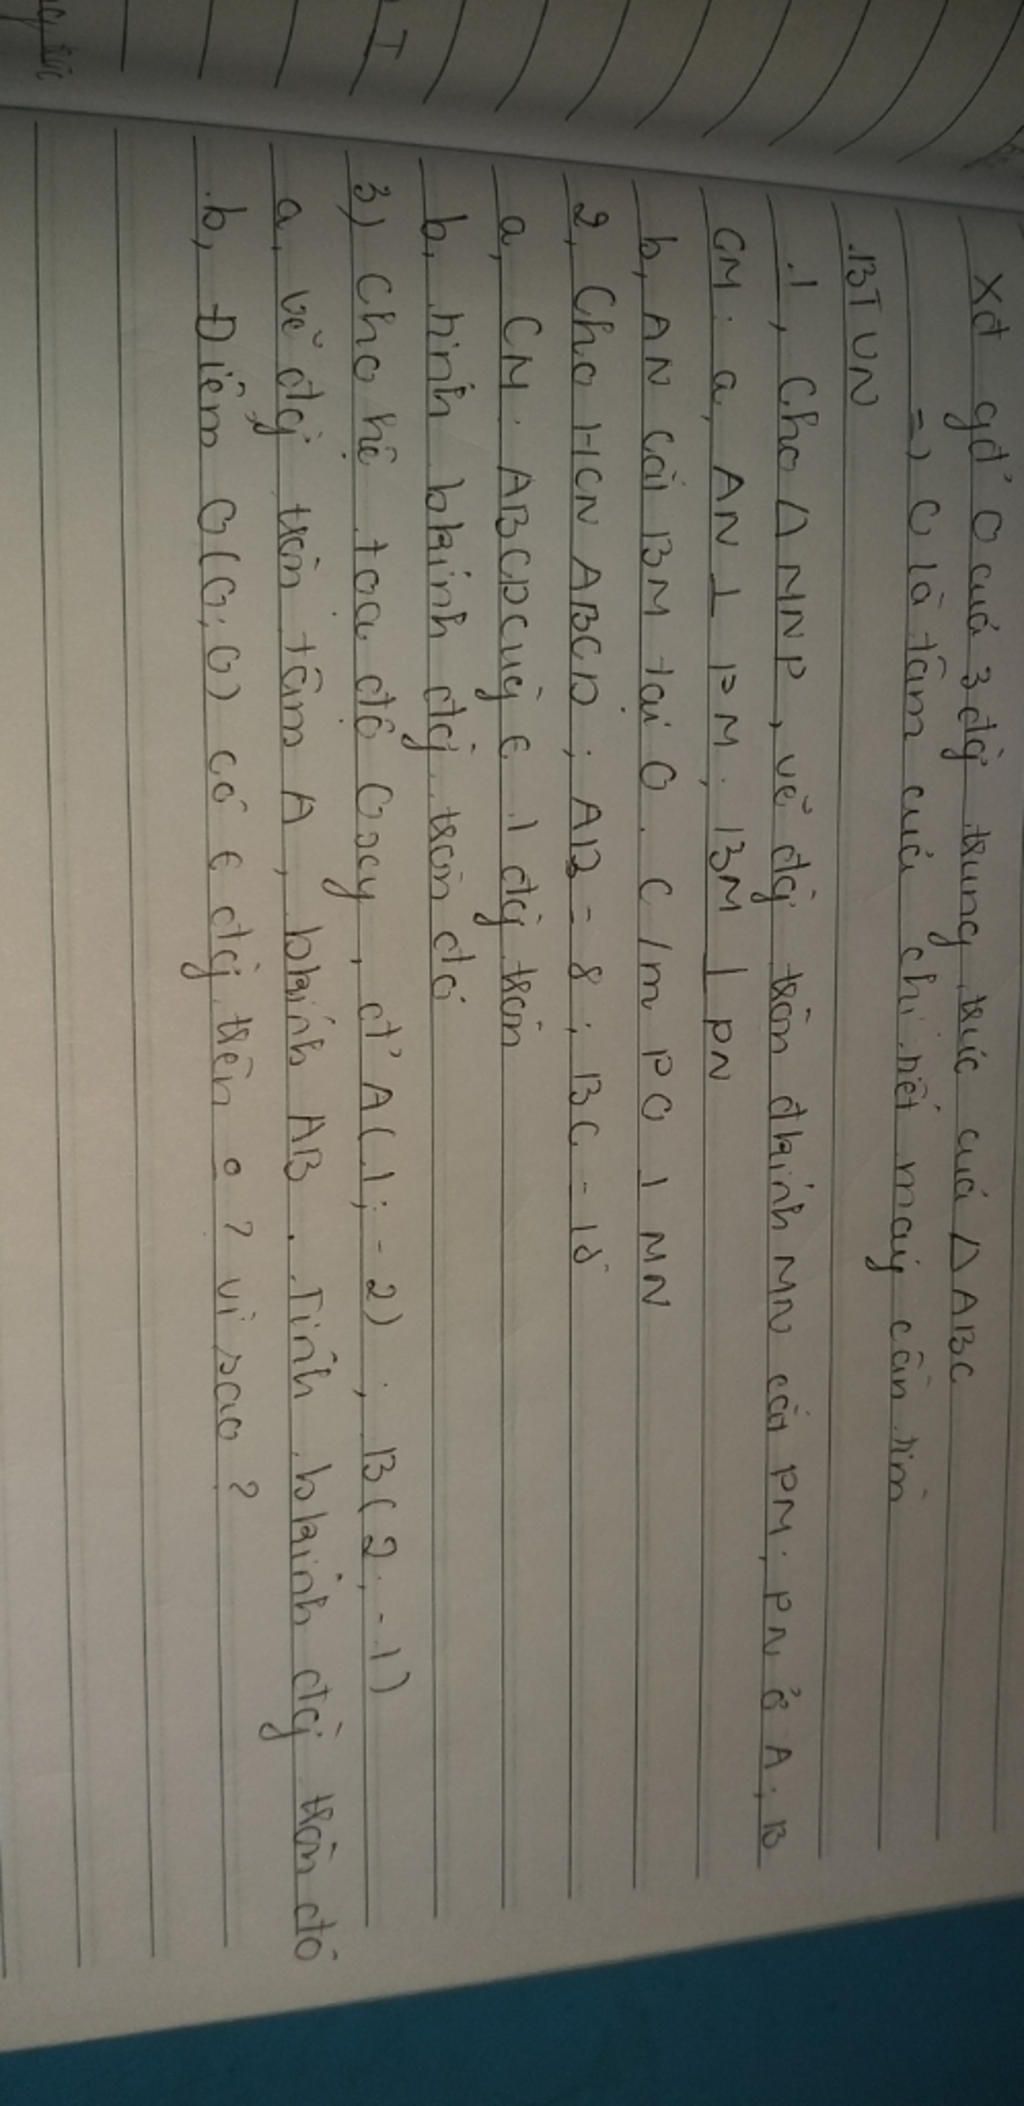 Xđ gđ' O của 3 đg trung trực của Δ ABC
=> O là tâm của chi tiết máy cần tìm
BTVN
1, Cho Δ MNP, vẽ đg tròn đkính MN cắt PM; PN ở A; B
CM: a, AN ⊥ PM; BM ⊥ PN
b, AN cắt BM tại O. C/m PO ⊥ MN
2, Cho HCN ABCD; AB = 8; BC = 15
a, CM: ABCD cùng ∈ 1 đg tròn
b, tính bkính đg tròn đó
3) Cho hệ toạ độ Oxy, đ' A(1; -2); B(2; -1)
a, vẽ đg tròn tâm A, bkính AB. Tính bkính đg tròn đó
b, Điểm O(0; 0) có ∈ đg trên o? vì sao?